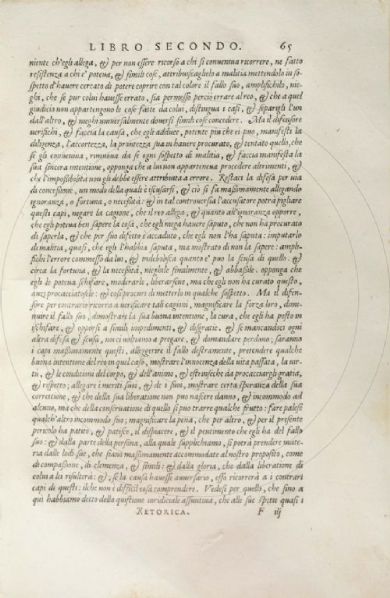 LIBRO SECONDO. 65
niente ch'egli allega, & per non essere ricorso a chi si conueniua ricorrere, ne fatto
resistenza a chi e' poteua, & simili cose, attribuiscaglielo a malitia mettendolo in so-
spetto d'hauere cercato di potere coprire con tal colore il fallo suo, amplifichilo, nie-
ghi, che se pur colui hauesse errato, sia permesso perciò errare al reo, & che a quel
giudicio non appartengono le cose fatte da colui, distingua i casi, & separigli l'un
dall'altro, & nieghi uniuersalmente douersi simili cose concedere. Ma il difensore
uerifichi, & faccia la causa, che egli adduce, potente piu che ei puo, manifesti la
diligenza, l'accortezza, la prontezza sua in hauere procurato, & tentato quello, che
se gli conueniua, rimuoua da se ogni sospetto di malitia, & faccia manifesta la
sua sincera intentione, opponga che a lui non apparteneua procedere altrimenti, &
che l'impossibilità non gli debbe essere attribuita a errore. Restaci la difesa per uia
di concessione, un modo della quale è iscusarsi, & ciò si fa massimamente allegando
ignoranza, o fortuna, o necessità: & in tal controuersia l'accusatore potrà pigliare
questi capi, negare la cagione, che il reo allega, & quanto all'ignoranza opporre,
che egli poteua ben sapere la cosa, che egli niega hauere saputo, che non ha procurato
di saperla, & che per suo difetto è accaduto, che egli non l'ha saputa: imputarlo
di malitia, quasi, che egli l'habbia saputa, ma mostrato di non la sapere: ampli-
fichi l'errore commesso da lui, & indebolisca quanto e' può la scusa di quello: &
circa la fortuna, & la necessità, nieghile finalmente, & abbassile. opponga che
egli le poteua schifare, moderarle, liberarsene, ma che egli non ha curato questo,
anzi procacciatosele: & cosi procuri di metterlo in qualche sospetto. Ma il difen-
sore per contrario ricorra a uerificare tali cagioni, magnificare la forza loro, dimi-
nuire il fallo suo, dimostrare la sua buona intentione, la cura, che egli ha posto in
ischifare, & opporsi a simili impedimenti, & disgratie. & se mancandoci ogni
altra difesa & scusa, noi ci uolteremo a pregare, & domandare perdono; saranno
i capi massimamente questi, alleggerire il fallo destramente, pretendere qualche
buona intentione del reo in quel caso, mostrare l'innocenza della uita passata, la uir-
tu, & le conditioni del corpo, & dell'animo, & estrinseche da procacciargli gratia,
& rispetto; allegare i meriti suoi, & de' suoi, mostrare certa speranza della sua
correttione, & che della sua liberatione non puo nascere danno, & incommodo ad
alcuno, ma che della conseruatione di quello si puo trarre qualche frutto: fare palese
qualch'altro incommodo suo; magnificare la pena, che per altro, & per il presente
pericolo ha patito, & patisce, il dispiacere, & il pentimento che egli ha del fallo
suo: & dalla parte della persona, alla quale supplichiamo, si potrà prendere mate-
ria dalle lodi sue, che siano massimamente accommodate al nostro proposito, come
di compassione, di clemenza, & simili: & dalla gloria, che dalla liberatione di
colui a lei risulterà: &, se la causa hauesse auuersario, esso ricorrerà a i contrari
capi di questi: ilche non è difficil cosa comprendere. Vedesi per quello, che sino a
qui habbiamo detto della questione iuridiciale assuntiua, che alle sue spetie quasi i
RETORICA. F iij